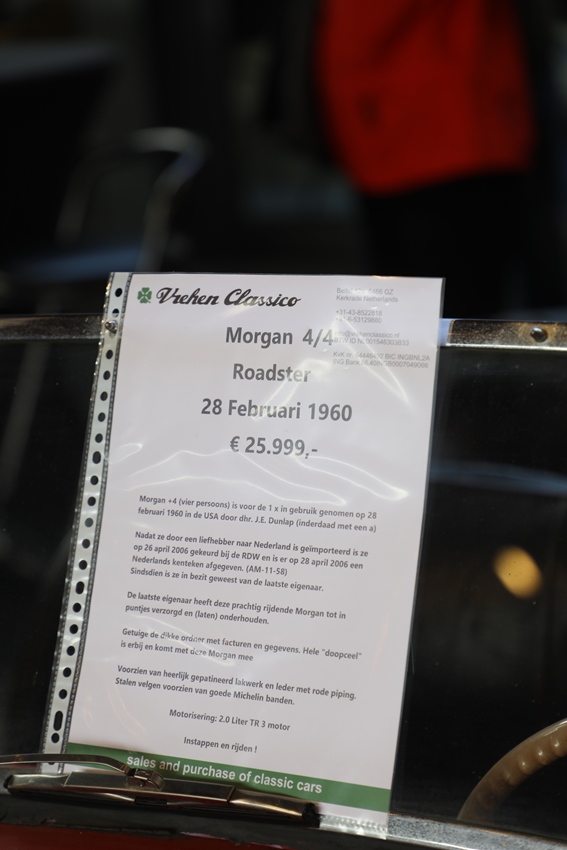 Vrehen Classico
Kerkrade Netherlands
+31-43-8522818
info@vrehenclassico.nl
Morgan 4/4
Roadster
28 Februari 1960
€ 25.999,-
Morgan +4 (vier persoons) is voor de 1 x in gebruik genomen op 28
februari 1960 in de USA door dhr. J.E. Dunlap (inderdaad met een a)
Nadat ze door een liefhebber naar Nederland is geïmporteerd is ze
op 26 april 2006 gekeurd bij de RDW en is er op 28 april 2006 een
Nederlands kenteken afgegeven. (AM-11-58)
Sindsdien is ze in bezit geweest van de laatste eigenaar.
De laatste eigenaar heeft deze prachtig rijdende Morgan tot in
puntjes verzorgd en (laten) onderhouden.
Getuige de dikke ordner met facturen en gegevens. Hele "doopceel"
is erbij en komt met deze Morgan mee
Voorzien van heerlijk gepatineerd lakwerk en leder met rode piping.
Stalen velgen voorzien van goede Michelin banden.
Motorisering: 2.0 Liter TR 3 motor
Instappen en rijden !
sales and purchase of classic cars